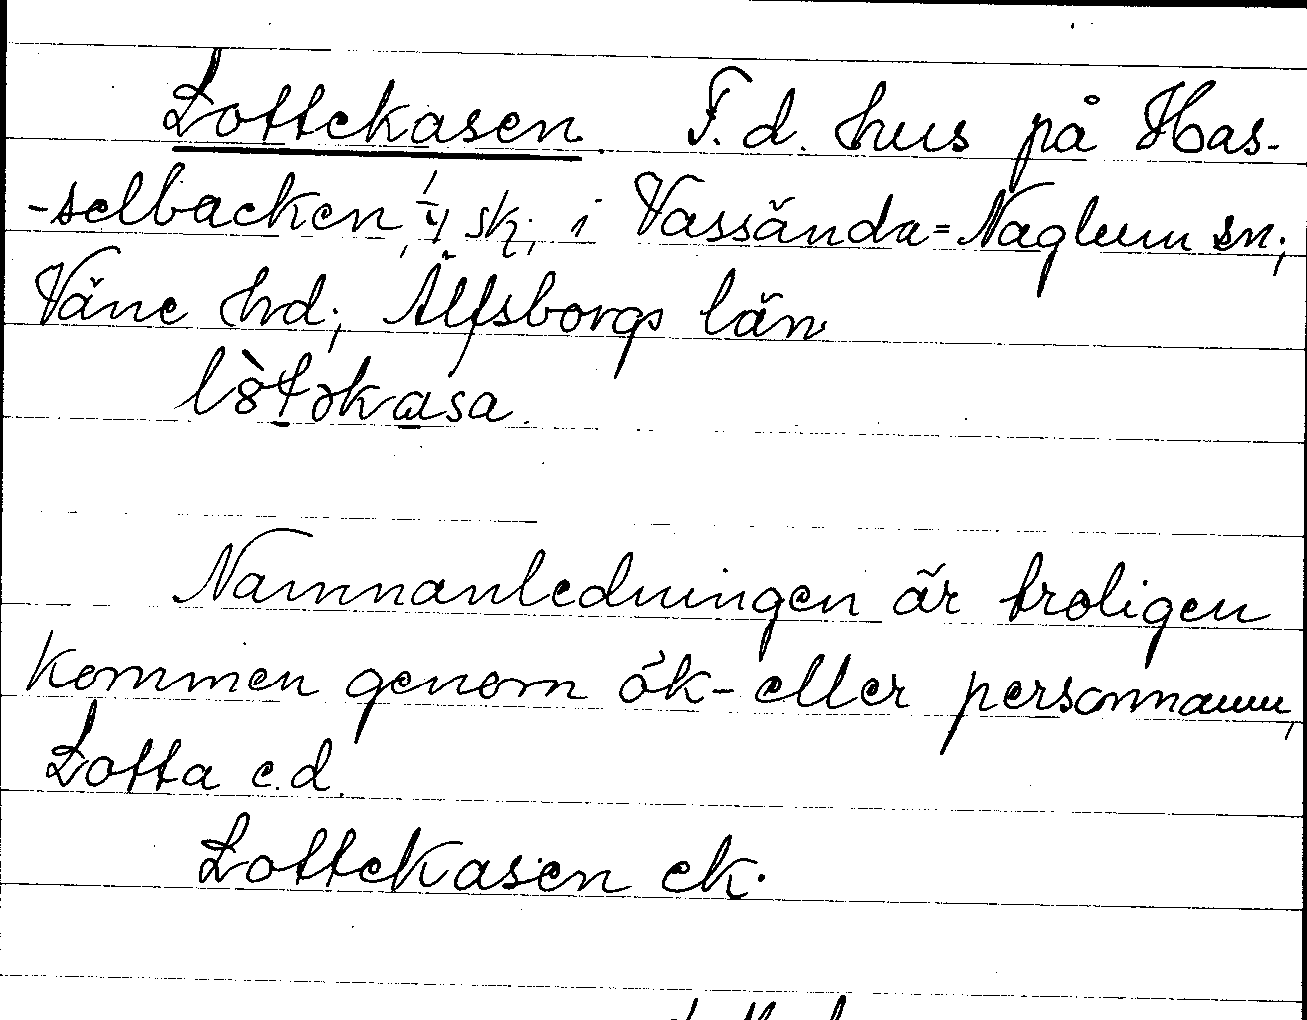 Lottekasen. F.d. hus på Has-
-selbacken, 1/4 sk; i Vassända=Naglum sn;
Väne hd; Älfsborgs län.
lòt̠əka̠sa.
Namnanledningen är troligen
kommen genom ök- eller personnamn,
Lotta e.d.
Lottekasen ek.